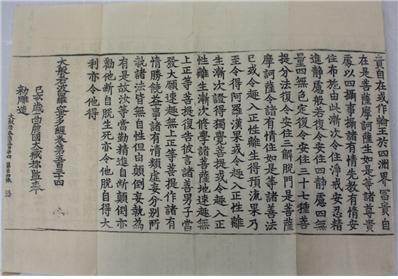 貴自在或作輪王於四洲界富貴自
在是菩薩摩訶薩生如是等諸尊貴
處以四攝事攝諸有情先教有情安
住布施由此漸次令住淨戒安忍精
進靜慮般若復令安住四靜慮四無
量四無色定復令安住三十七種菩
提分法復令安住三解脫門是菩薩
摩訶薩令諸有情住如是等諸善法
已或令趣入正性離生得預流果乃
至令得阿羅漢果或令趣入正性離
生漸次證得獨覺菩提或令趣入正
性離生漸次修學諸菩薩地速趣無
上正等菩提復告彼言諸善男子當
發大願速趣無上正等菩提作諸有
情勝饒益事諸有情類虛妄分別所
執諸法皆無自性但由顛倒妄執為
有是故汝等當勤精進自斷顛倒亦
勸他斷自脫生死亦令他脫自得大
利亦令他得
大般若波羅蜜多經卷第五百三十四
己亥歲高麗國大藏都監奉
勅雕造